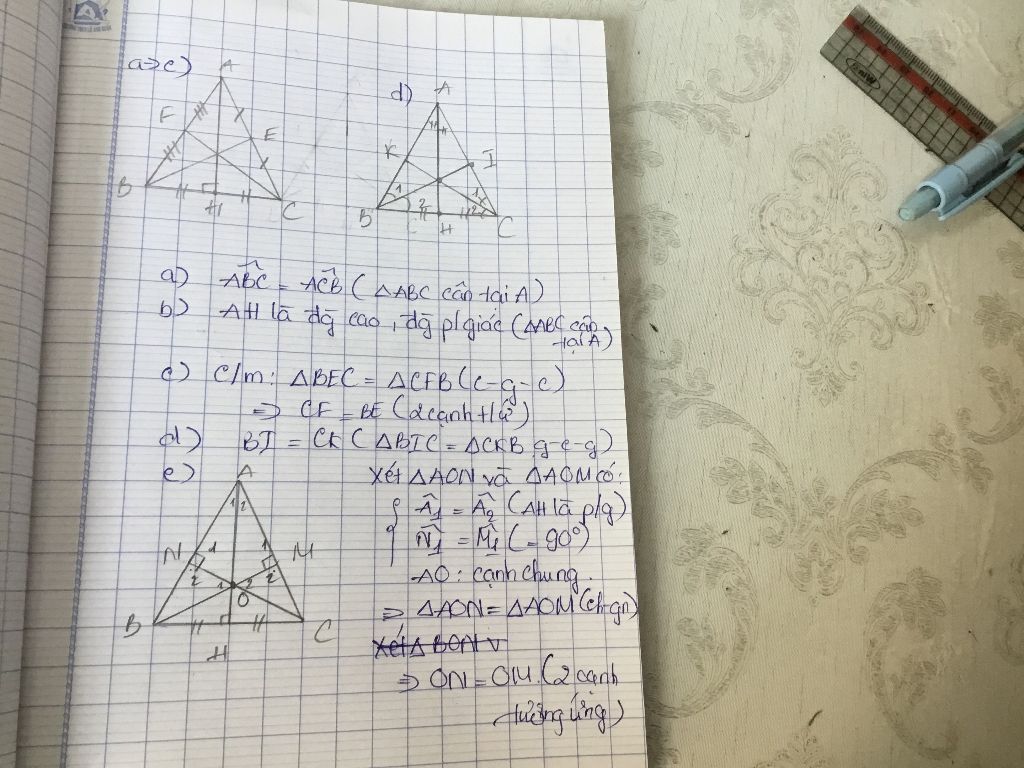 a→c)
A
F
E
B
H
C
d)
A
K
I
B
1
2
H
1
2
C
a) ABC = ACB ( ΔABC cân tại A)
b) AH là đg cao, đg p/giác (ΔABC cân
tại A)
c) C/m: ΔBEC = ΔCFB (c-g-c)
=> CF = BE (2 cạnh t/ứ)
d) BI = CK ( ΔBIC = ΔCKB g-c-g)
e)
A
1 2
N 1
2
1 M
2
1 2
O
B
H
C
Xét ΔAON và ΔAOM có:
Â1 = Â2 (AH là p/g)
N̂1 = M̂1 (= 90°)
AO : cạnh chung.
=> ΔAON = ΔAOM (ch-gn)
Xét Δ BON v
=> ON = OM. (2 cạnh
tương ứng)